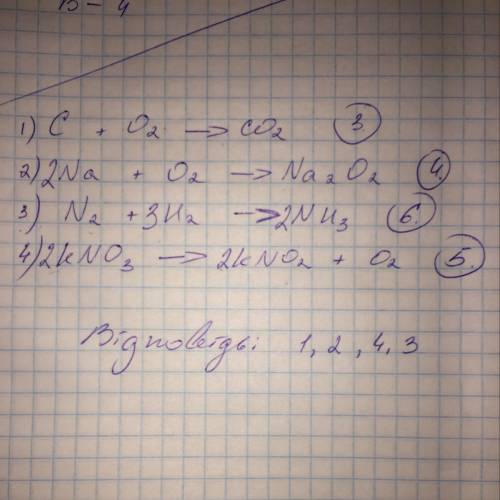 В - 4
1) C + O₂ → CO₂ ③
2) 2Na + O₂ → Na₂O₂ ④
3) N₂ + 3H₂ → 2NH₃ ⑥
4) 2KNO₃ → 2KNO₂ + O₂ ⑤
Відповідь: 1, 2, 4, 3